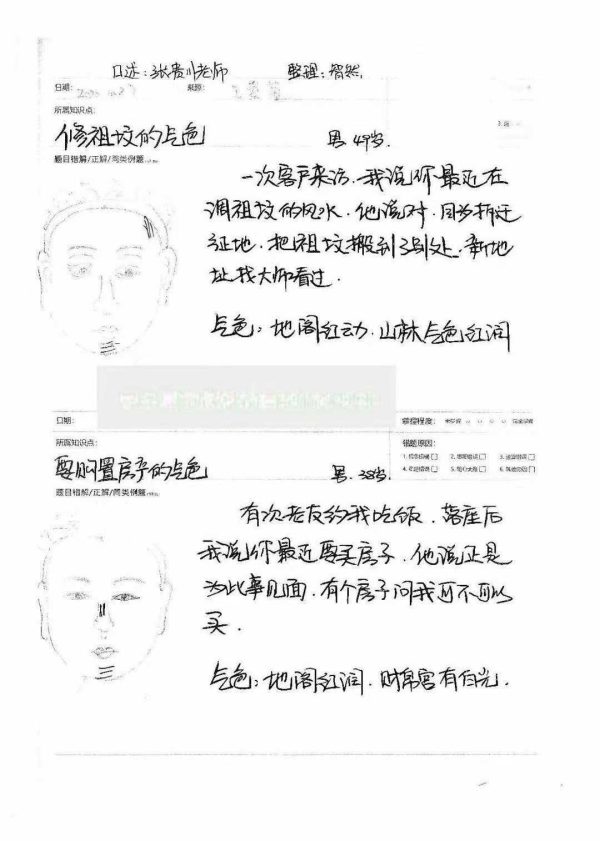 口述：张贵川老师 整理：智然.
日期： 来源：
所属知识点：
修祖坟的气色 男 49岁.
题目错解/正解/同类例题
一次客户来访.我说你最近在
调祖坟的风水.他说对.因为拆迁
征地.把祖坟搬到了别处.新地
址找大师看过.
气色：地阁红动.山林气色红润
日期： 掌握程度：
所属知识点： 错题原因：
要购置房子的气色 男.38岁.
题目错解/正解/同类例题
有次老友约我吃饭.落座后
我说你最近要买房子.他说正是
为此事见面.有个房子问我可不可以
买.
气色：地阁红润.财帛宫有白光.